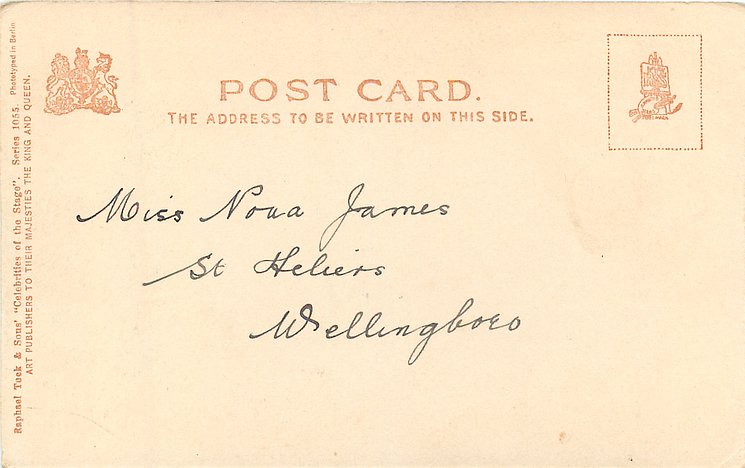 POST CARD.
THE ADDRESS TO BE WRITTEN ON THIS SIDE.
Miss Nova James
St Heliers
Wellingboro
Raphael Tuck & Sons' "Celebrities of the Stage". Series 1055. Phototyped in Berlin
ART PUBLISHERS TO THEIR MAJESTIES THE KING AND QUEEN.